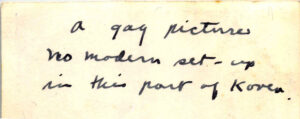 a gag picture
no modern set-up
in this part of Korea.